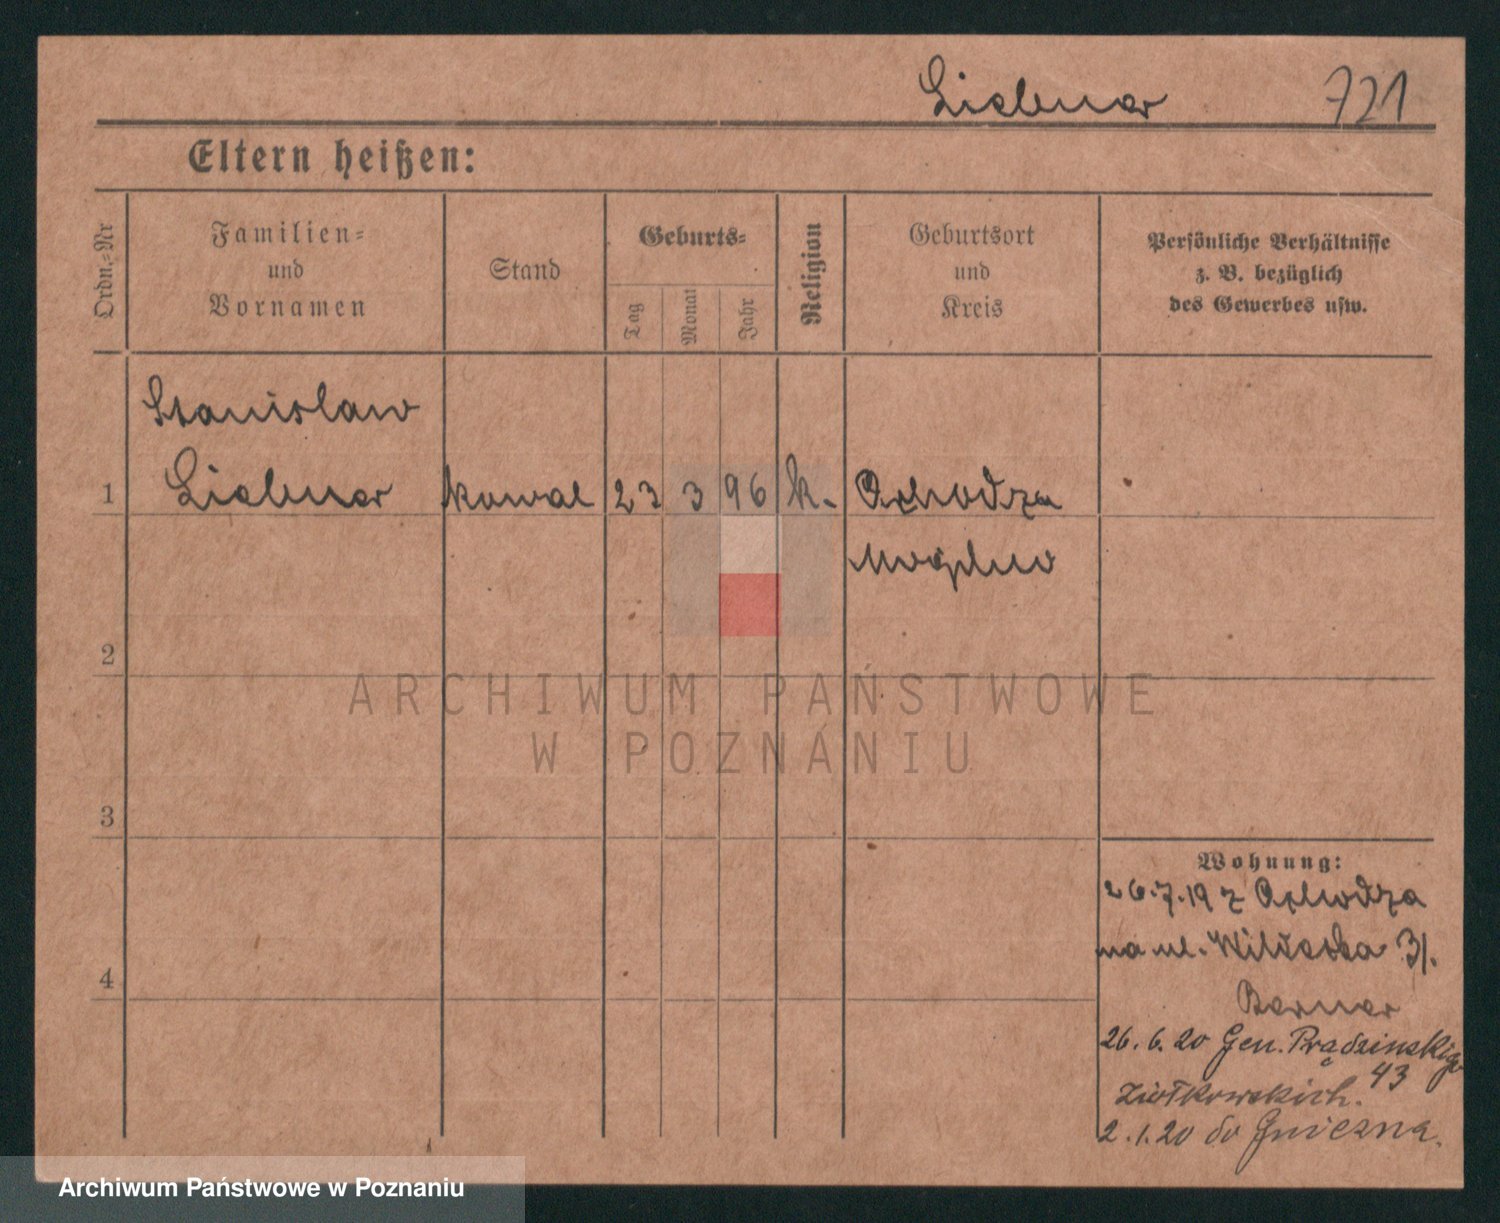 Liebner 721
Eltern heißen:
Ordn.-Nr
Familien-
und
Vornamen
Stand
Geburts-
Tag
Monat
Jahr
Religion
Geburtsort
und
Kreis
Persönliche Verhältnisse
z. B. bezüglich
des Gewerbes usw.
Stanislaw
1 Liebner kowal 23 3 96 k. Orchodza
Mogilno
2
3
4
Wohnung:
26.7.19 z Orchodza
na ul. 31.
Berner
26.6.20 Gen. Prądzinskiego
43
Ziółkowskich.
2.1.20 do Gniezna.
ARCHIWUM PAŃSTWOWE
W POZNANIU
Archiwum Państwowe w Poznaniu